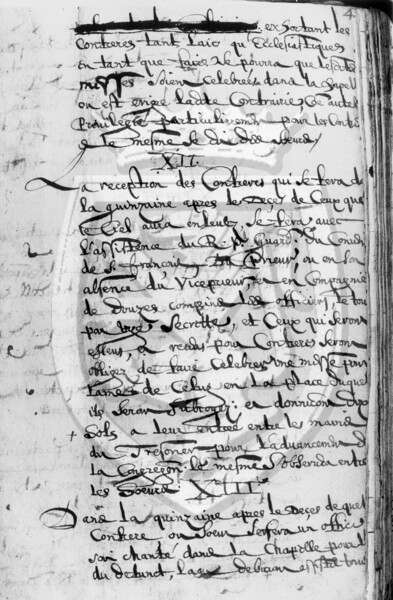 4
exortant les
Confreres tant laic qu'Eclesiastiques
en tant que faire se pourra que lesdites
messes soien Celebrées dans la Chapell
ou est erigé ladite Confrairie Ce autel
Privilegié particulierement pour les Confr
& le mesme se dit des soeurs
XII.
La reception des Confreres qui se fera d
la quinzaine apres le Deces de Ceux que
le Ciel aura enleué, se fera avec
l'assistence du R. P. Guard. du Conuen
de St francois, du Prieur, ou en son
absence du Viceprieur, et en Compagnie
de douzes comprins les officiers, le tou
par voix Secrette, et Ceux qui seron
esleus, et receus pour Confreres seron
obligez de faire Celebrer une messe pour
l'ames de Celuy en la place duquel
ils seron subrogez, et donneron dix
+ sols a leur entrée entre les mains
du Tresorier pour l'aduancement d
la Congregon: le mesme s'obseruera entre
les Soeurs XIII.
Dans la quinzaine apres le Deces de quelq
Confrere ou Soeur se fera un office
soit chanté dans la Chapelle pour l
du defunct,